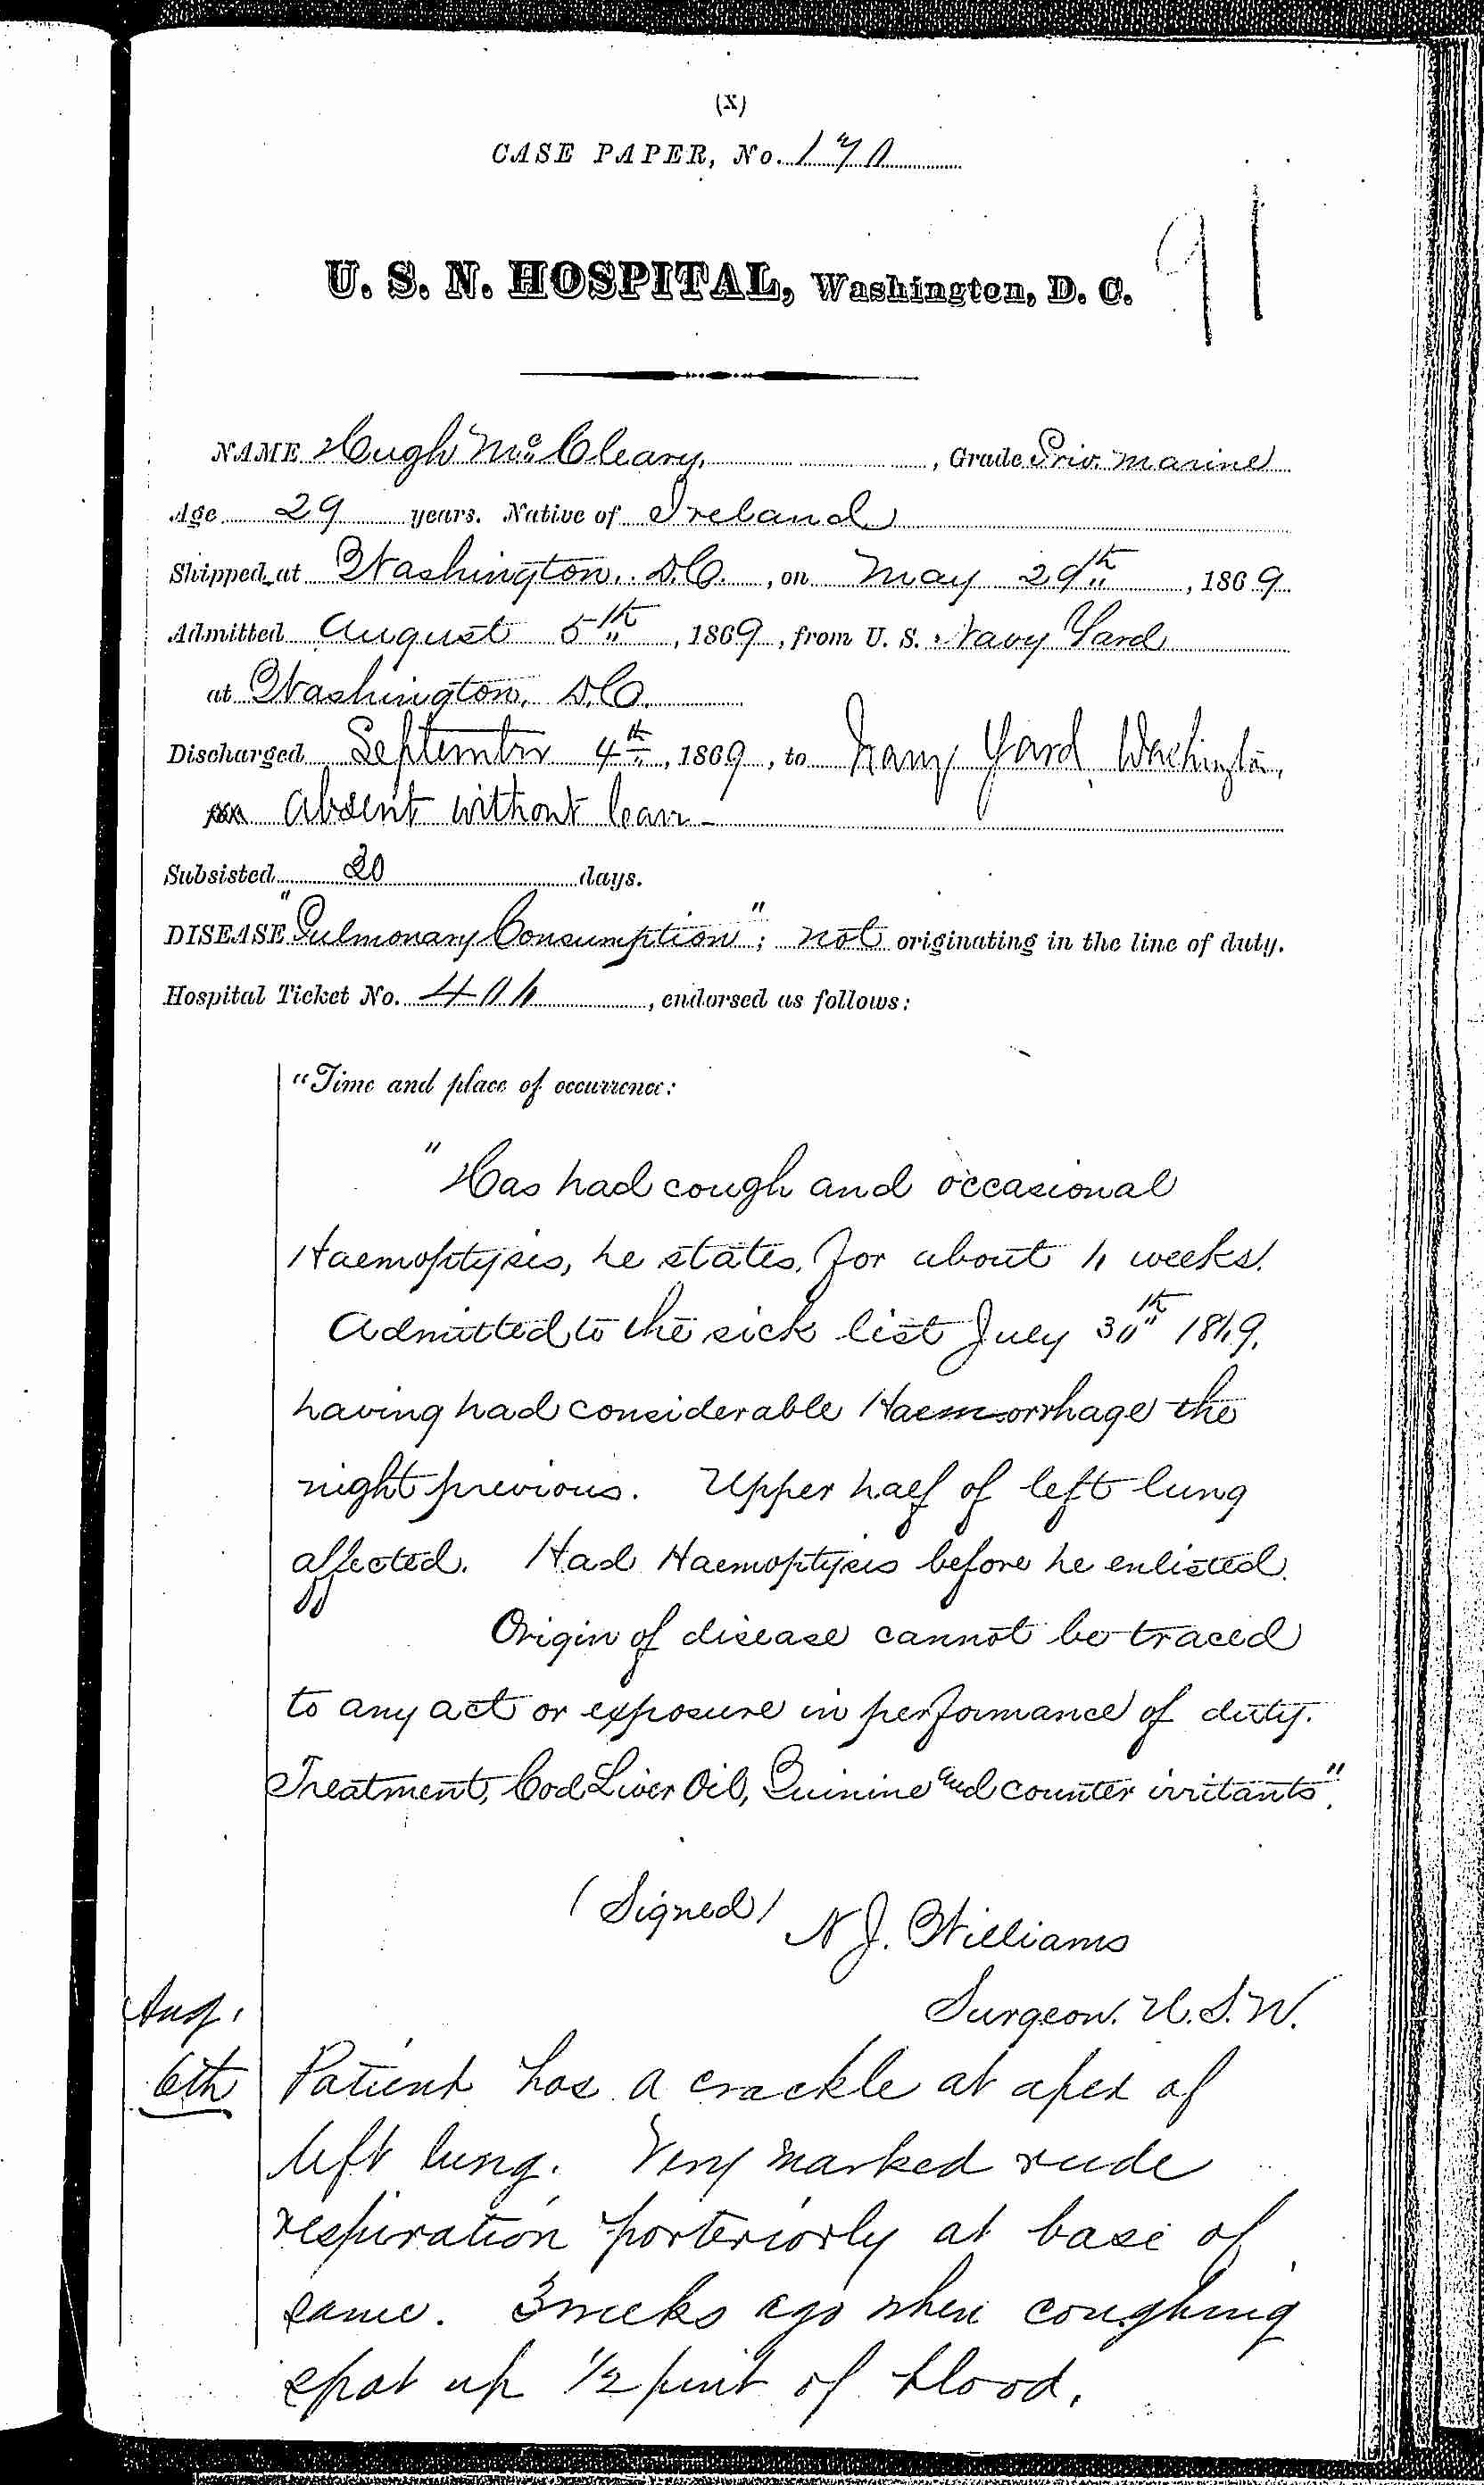 (X)
CASE PAPER, No. 170
91
U. S. N. HOSPITAL, Washington, D. C.
NAME Hugh McCleary, , Grade Priv. Marine
Age 29 years. Native of Ireland
Shipped at Washington, D.C. , on May 29th , 1869.
Admitted August 5th , 1869 , from U. S. Navy Yard
at Washington, D.C.
Discharged September 4th , 1869 , to Navy Yard Washington,
absent without leave -
Subsisted 30 days.
DISEASE "Pulmonary Consumption"; not originating in the line of duty.
Hospital Ticket No. , endorsed as follows:
"Time and place of occurrence:
"Has had cough and occasional
Haemoptysis, he states, for about weeks.
Admitted to the sick list July 30th 1869,
having had considerable Haemorrhage the
night previous. Upper half of left lung
affected. Had Haemoptysis before he enlisted.
Origin of disease cannot be traced
to any act or exposure in performance of duty.
Treatment, Cod Liver Oil, Quinine and counter irritants".
(Signed) N J. Williams
Surgeon. U.S.N.
Aug.
6th Patient has a crackle at apex of
left lung. Very marked rude
respiration posteriorly at base of
same. 3 weeks ago when coughing
spat up 1/2 pint of blood.